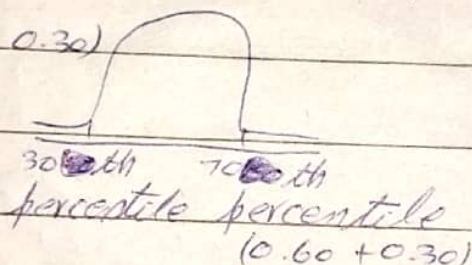 0.30)
30th 70th
percentile percentile
(0.60 + 0.30)